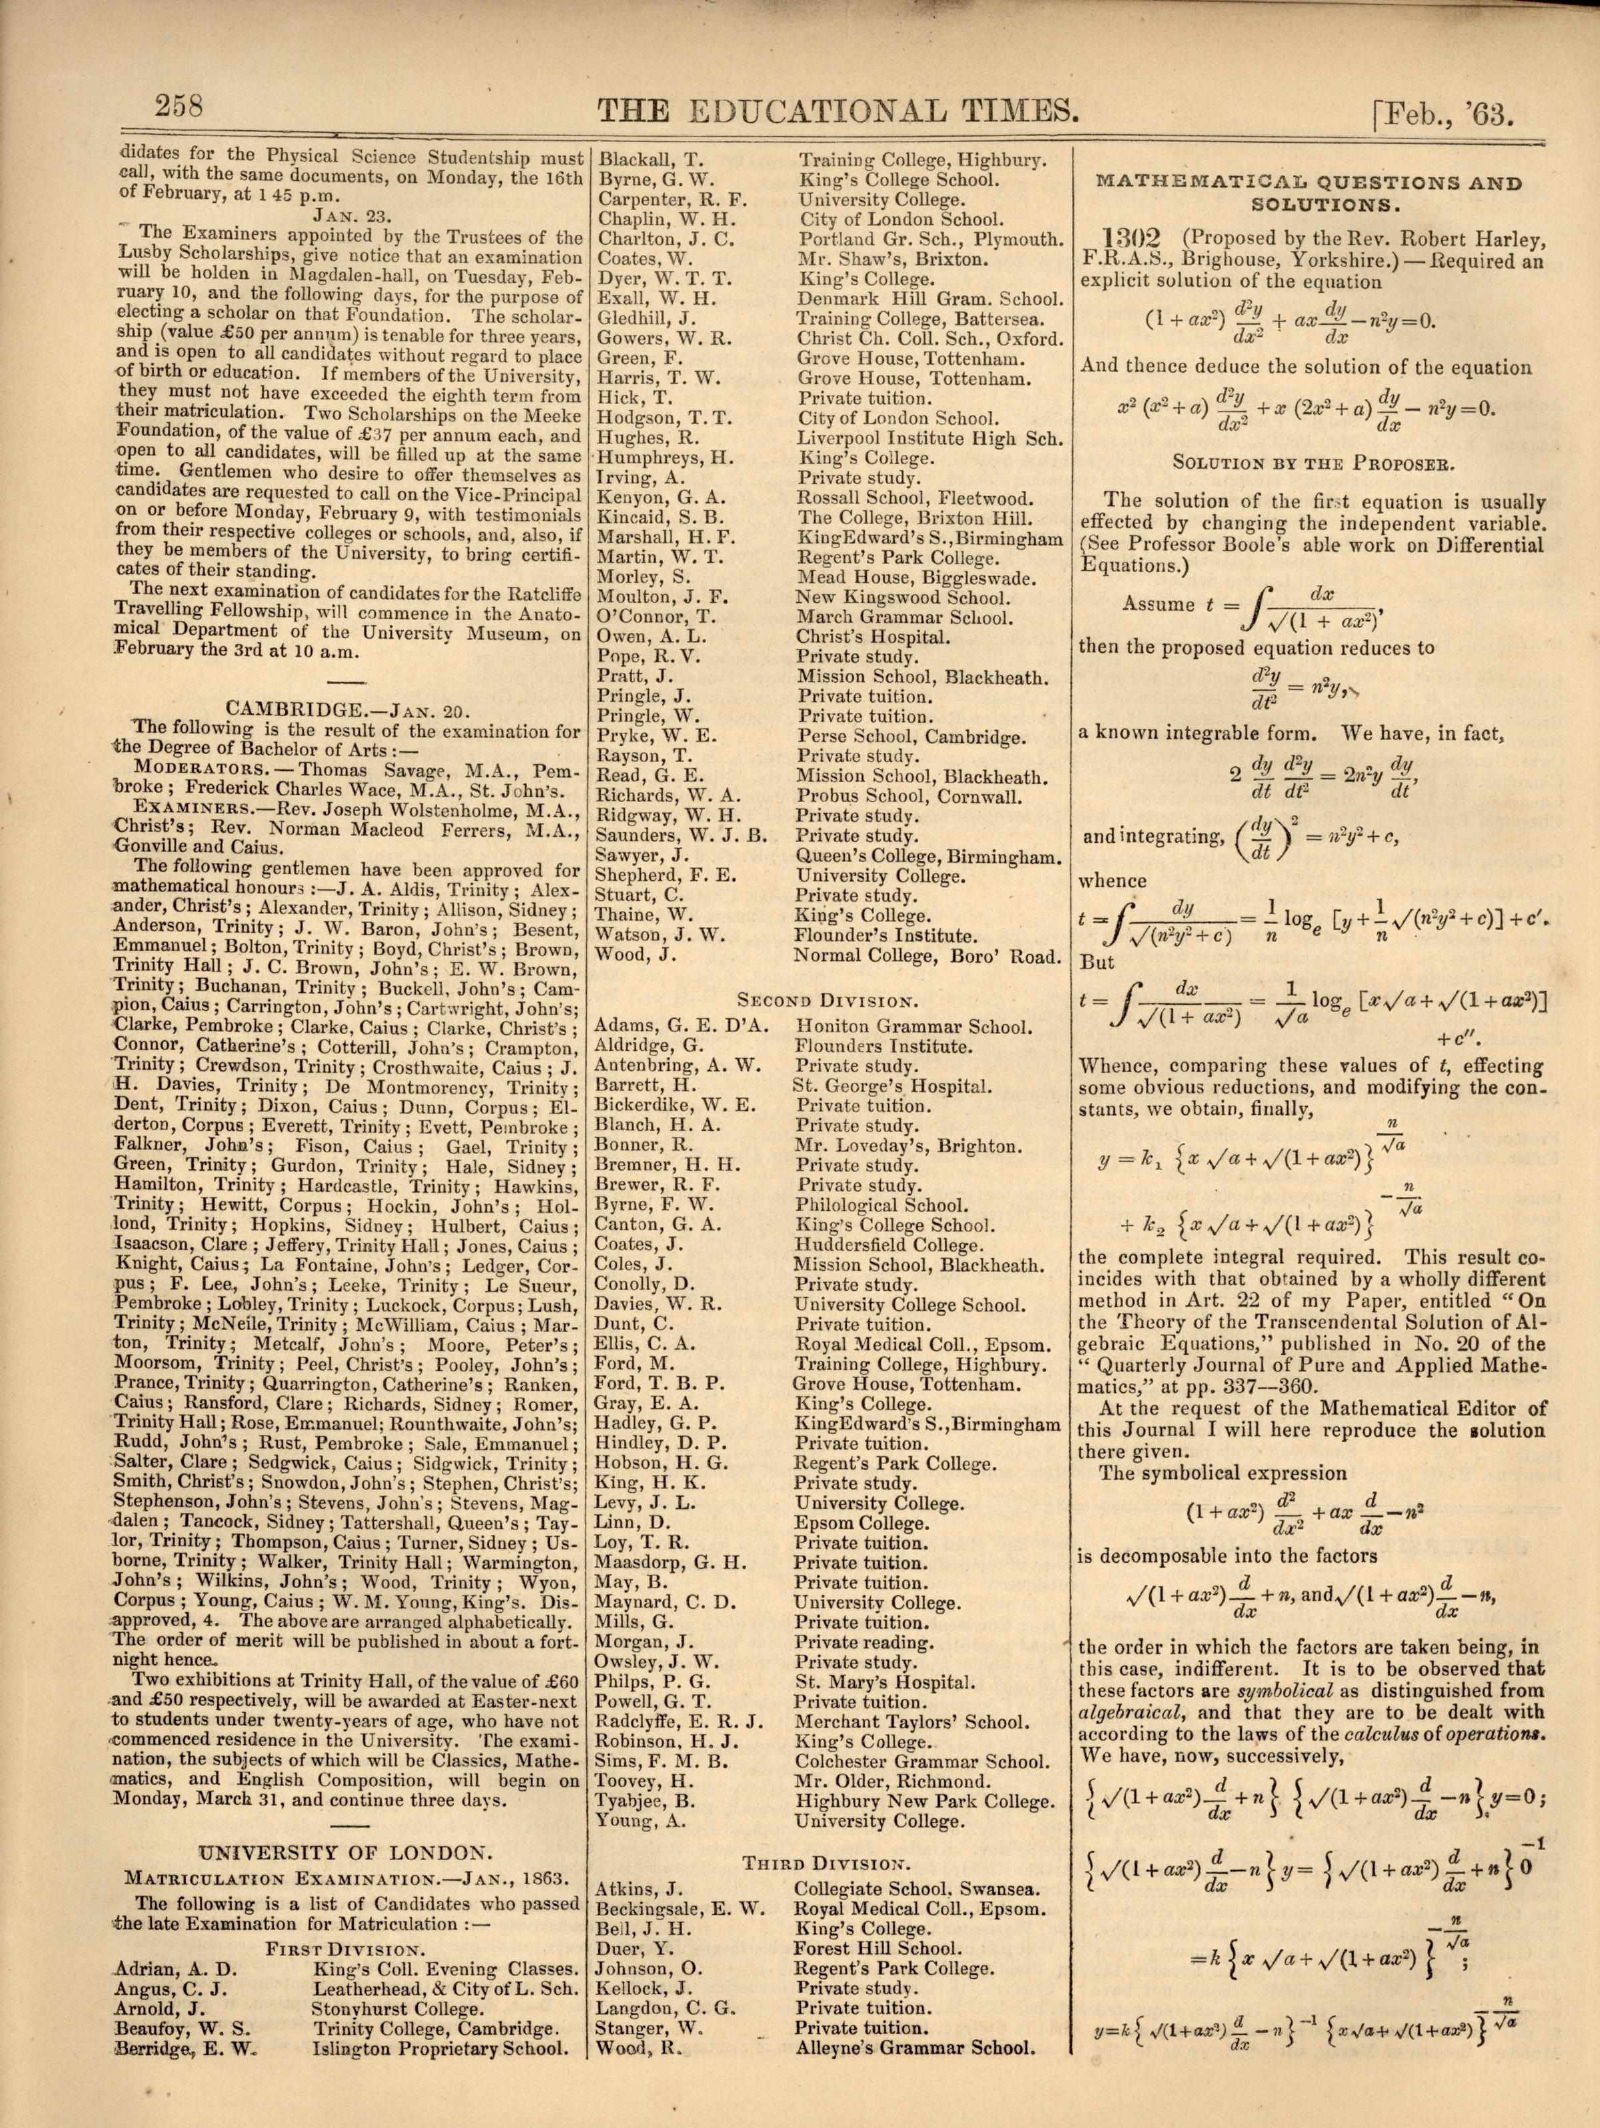 258
THE EDUCATIONAL TIMES.
[Feb., '63.
didates for the Physical Science Studentship must
call, with the same documents, on Monday, the 16th
of February, at 1 45 p.m.
JAN. 23.
The Examiners appointed by the Trustees of the
Lusby Scholarships, give notice that an examination
will be holden in Magdalen-hall, on Tuesday, Feb-
ruary 10, and the following days, for the purpose of
electing a scholar on that Foundation. The scholar-
ship (value £50 per annum) is tenable for three years,
and is open to all candidates without regard to place
of birth or education. If members of the University,
they must not have exceeded the eighth term from
their matriculation. Two Scholarships on the Meeke
Foundation, of the value of £37 per annum each, and
open to all candidates, will be filled up at the same
time. Gentlemen who desire to offer themselves as
candidates are requested to call on the Vice-Principal
on or before Monday, February 9, with testimonials
from their respective colleges or schools, and, also, if
they be members of the University, to bring certifi-
cates of their standing.
The next examination of candidates for the Ratcliffe
Travelling Fellowship, will commence in the Anato-
mical Department of the University Museum, on
February the 3rd at 10 a.m.
CAMBRIDGE.—JAN. 20.
The following is the result of the examination for
the Degree of Bachelor of Arts :—
MODERATORS.—Thomas Savage, M.A., Pem-
broke ; Frederick Charles Wace, M.A., St. John's.
EXAMINERS.—Rev. Joseph Wolstenholme, M.A.,
Christ's; Rev. Norman Macleod Ferrers, M.A.,
Gonville and Caius.
The following gentlemen have been approved for
mathematical honours :—J. A. Aldis, Trinity ; Alex-
ander, Christ's ; Alexander, Trinity ; Allison, Sidney ;
Anderson, Trinity ; J. W. Baron, John's ; Besent,
Emmanuel; Bolton, Trinity ; Boyd, Christ's ; Brown,
Trinity Hall ; J. C. Brown, John's ; E. W. Brown,
Trinity ; Buchanan, Trinity ; Buckell, John's ; Cam-
pion, Caius ; Carrington, John's ; Cartwright, John's;
Clarke, Pembroke ; Clarke, Caius ; Clarke, Christ's ;
Connor, Catherine's ; Cotterill, John's ; Crampton,
Trinity ; Crewdson, Trinity ; Crosthwaite, Caius ; J.
H. Davies, Trinity ; De Montmorency, Trinity ;
Dent, Trinity ; Dixon, Caius ; Dunn, Corpus ; El-
derton, Corpus ; Everett, Trinity ; Evett, Pembroke ;
Falkner, John's ; Fison, Caius ; Gael, Trinity ;
Green, Trinity ; Gurdon, Trinity ; Hale, Sidney ;
Hamilton, Trinity ; Hardcastle, Trinity ; Hawkins,
Trinity ; Hewitt, Corpus ; Hockin, John's ; Hol-
lond, Trinity ; Hopkins, Sidney ; Hulbert, Caius ;
Isaacson, Clare ; Jeffery, Trinity Hall ; Jones, Caius ;
Knight, Caius ; La Fontaine, John's ; Ledger, Cor-
pus ; F. Lee, John's ; Leeke, Trinity ; Le Sueur,
Pembroke ; Lobley, Trinity ; Luckock, Corpus; Lush,
Trinity ; McNeile, Trinity ; McWilliam, Caius ; Mar-
ton, Trinity ; Metcalf, John's ; Moore, Peter's ;
Moorsom, Trinity ; Peel, Christ's ; Pooley, John's ;
Prance, Trinity ; Quarrington, Catherine's ; Ranken,
Caius ; Ransford, Clare ; Richards, Sidney ; Romer,
Trinity Hall ; Rose, Emmanuel; Rounthwaite, John's;
Rudd, John's ; Rust, Pembroke ; Sale, Emmanuel ;
Salter, Clare ; Sedgwick, Caius ; Sidgwick, Trinity ;
Smith, Christ's ; Snowdon, John's ; Stephen, Christ's;
Stephenson, John's ; Stevens, John's ; Stevens, Mag-
dalen ; Tancock, Sidney ; Tattershall, Queen's ; Tay-
lor, Trinity ; Thompson, Caius ; Turner, Sidney ; Us-
borne, Trinity ; Walker, Trinity Hall ; Warmington,
John's ; Wilkins, John's ; Wood, Trinity ; Wyon,
Corpus ; Young, Caius ; W. M. Young, King's. Dis-
approved, 4. The above are arranged alphabetically.
The order of merit will be published in about a fort-
night hence.
Two exhibitions at Trinity Hall, of the value of £60
and £50 respectively, will be awarded at Easter-next
to students under twenty-years of age, who have not
commenced residence in the University. The exami-
nation, the subjects of which will be Classics, Mathe-
matics, and English Composition, will begin on
Monday, March 31, and continue three days.
UNIVERSITY OF LONDON.
MATRICULATION EXAMINATION.—JAN., 1863.
The following is a list of Candidates who passed
the late Examination for Matriculation :—
FIRST DIVISION.
Adrian, A. D. King's Coll. Evening Classes.
Angus, C. J. Leatherhead, & City of L. Sch.
Arnold, J. Stonyhurst College.
Beaufoy, W. S. Trinity College, Cambridge.
Berridge, E. W. Islington Proprietary School.
Blackall, T. Training College, Highbury.
Byrne, G. W. King's College School.
Carpenter, R. F. University College.
Chaplin, W. H. City of London School.
Charlton, J. C. Portland Gr. Sch., Plymouth.
Coates, W. Mr. Shaw's, Brixton.
Dyer, W. T. T. King's College.
Exall, W. H. Denmark Hill Gram. School.
Gledhill, J. Training College, Battersea.
Gowers, W. R. Christ Ch. Coll. Sch., Oxford.
Green, F. Grove House, Tottenham.
Harris, T. W. Grove House, Tottenham.
Hick, T. Private tuition.
Hodgson, T. T. City of London School.
Hughes, R. Liverpool Institute High Sch.
Humphreys, H. King's College.
Irving, A. Private study.
Kenyon, G. A. Rossall School, Fleetwood.
Kincaid, S. B. The College, Brixton Hill.
Marshall, H. F. King Edward's S., Birmingham
Martin, W. T. Regent's Park College.
Morley, S. Mead House, Biggleswade.
Moulton, J. F. New Kingswood School.
O'Connor, T. March Grammar School.
Owen, A. L. Christ's Hospital.
Pope, R. V. Private study.
Pratt, J. Mission School, Blackheath.
Pringle, J. Private tuition.
Pringle, W. Private tuition.
Pryke, W. E. Perse School, Cambridge.
Rayson, T. Private study.
Read, G. E. Mission School, Blackheath.
Richards, W. A. Probus School, Cornwall.
Ridgway, W. H. Private study.
Saunders, W. J. B. Private study.
Sawyer, J. Queen's College, Birmingham.
Shepherd, F. E. University College.
Stuart, C. Private study.
Thaine, W. King's College.
Watson, J. W. Flounder's Institute.
Wood, J. Normal College, Boro' Road.
SECOND DIVISION.
Adams, G. E. D'A. Honiton Grammar School.
Aldridge, G. Flounders Institute.
Antenbring, A. W. Private study.
Barrett, H. St. George's Hospital.
Bickerdike, W. E. Private tuition.
Blanch, H. A. Private study.
Bonner, R. Mr. Loveday's, Brighton.
Bremner, H. H. Private study.
Brewer, R. F. Private study.
Byrne, F. W. Philological School.
Canton, G. A. King's College School.
Coates, J. Huddersfield College.
Coles, J. Mission School, Blackheath.
Conolly, D. Private study.
Davies, W. R. University College School.
Dunt, C. Private tuition.
Ellis, C. A. Royal Medical Coll., Epsom.
Ford, M. Training College, Highbury.
Ford, T. B. P. Grove House, Tottenham.
Gray, E. A. King's College.
Hadley, G. P. King Edward's S., Birmingham
Hindley, D. P. Private tuition.
Hobson, H. G. Regent's Park College.
King, H. K. Private study.
Levy, J. L. University College.
Linn, D. Epsom College.
Loy, T. R. Private tuition.
Maasdorp, G. H. Private tuition.
May, B. Private tuition.
Maynard, C. D. University College.
Mills, G. Private tuition.
Morgan, J. Private reading.
Owsley, J. W. Private study.
Philps, P. G. St. Mary's Hospital.
Powell, G. T. Private tuition.
Radclyffe, E. R. J. Merchant Taylors' School.
Robinson, H. J. King's College.
Sims, F. M. B. Colchester Grammar School.
Toovey, H. Mr. Older, Richmond.
Tyabjee, B. Highbury New Park College.
Young, A. University College.
THIRD DIVISION.
Atkins, J. Collegiate School, Swansea.
Beckingsale, E. W. Royal Medical Coll., Epsom.
Bell, J. H. King's College.
Duer, Y. Forest Hill School.
Johnson, O. Regent's Park College.
Kellock, J. Private study.
Langdon, C. G. Private tuition.
Stanger, W. Private tuition.
Wood, R. Alleyne's Grammar School.
MATHEMATICAL QUESTIONS AND
SOLUTIONS.
1302 (Proposed by the Rev. Robert Harley,
F.R.A.S., Brighouse, Yorkshire.) — Required an
explicit solution of the equation
(1 + ax²) d²y/dx² + ax dy/dx − n²y = 0.
And thence deduce the solution of the equation
x² (x² + a) d²y/dx² + x (2x² + a) dy/dx − n²y = 0.
SOLUTION BY THE PROPOSER.
The solution of the first equation is usually
effected by changing the independent variable.
(See Professor Boole's able work on Differential
Equations.)
Assume t = ∫ dx/√(1 + ax²),
then the proposed equation reduces to
d²y/dt² = n²y,
a known integrable form. We have, in fact,
2 dy/dt d²y/dt² = 2n²y dy/dt,
and integrating, (dy/dt)² = n²y² + c,
whence
t = ∫ dy/√(n²y² + c) = 1/n logₑ [y + 1/n √(n²y² + c)] + c'.
But
t = ∫ dx/√(1 + ax²) = 1/√a logₑ [x√a + √(1 + ax²)]
+ c''.
Whence, comparing these values of t, effecting
some obvious reductions, and modifying the con-
stants, we obtain, finally,
y = k₁ {x √a + √(1 + ax²)}^(n/√a)
+ k₂ {x √a + √(1 + ax²)}^(−n/√a)
the complete integral required. This result co-
incides with that obtained by a wholly different
method in Art. 22 of my Paper, entitled "On
the Theory of the Transcendental Solution of Al-
gebraic Equations," published in No. 20 of the
"Quarterly Journal of Pure and Applied Mathe-
matics," at pp. 337—360.
At the request of the Mathematical Editor of
this Journal I will here reproduce the solution
there given.
The symbolical expression
(1 + ax²) d²/dx² + ax d/dx − n²
is decomposable into the factors
√(1 + ax²) d/dx + n, and √(1 + ax²) d/dx − n,
the order in which the factors are taken being, in
this case, indifferent. It is to be observed that
these factors are symbolical as distinguished from
algebraical, and that they are to be dealt with
according to the laws of the calculus of operations.
We have, now, successively,
{√(1 + ax²) d/dx + n} {√(1 + ax²) d/dx − n} y = 0;
{√(1 + ax²) d/dx − n} y = {√(1 + ax²) d/dx + n}⁻¹ 0
= k {x √a + √(1 + ax²)}^(−n/√a);
y = k {√(1 + ax²) d/dx − n}⁻¹ {x√a + √(1 + ax²)}^(−n/√a)